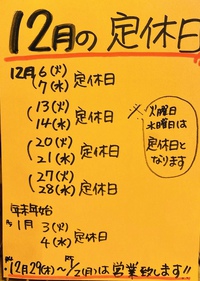 12月の定休日
12月6(火)
7(水)定休日
13(火)
14(水)定休日
20(火)
21(水)定休日
27(火)
28(水)定休日
※火曜日
水曜日は
定休日と
なります
年末年始
1月3(火)
4(水)定休日
12月29(木)〜1/2(月)は営業致します!!